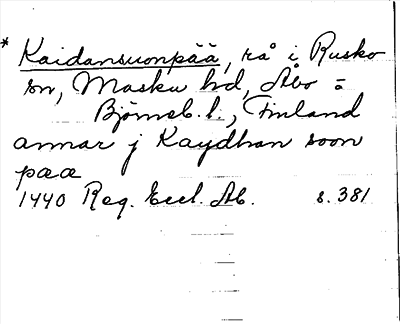 * Kaidansuonpää, rå i Rusko
sn, Masku hd, Åbo o
Björneb. l., Finland
annar j Kaydhan soon
pææ
1440 Reg. Eccl. Ab. s. 381